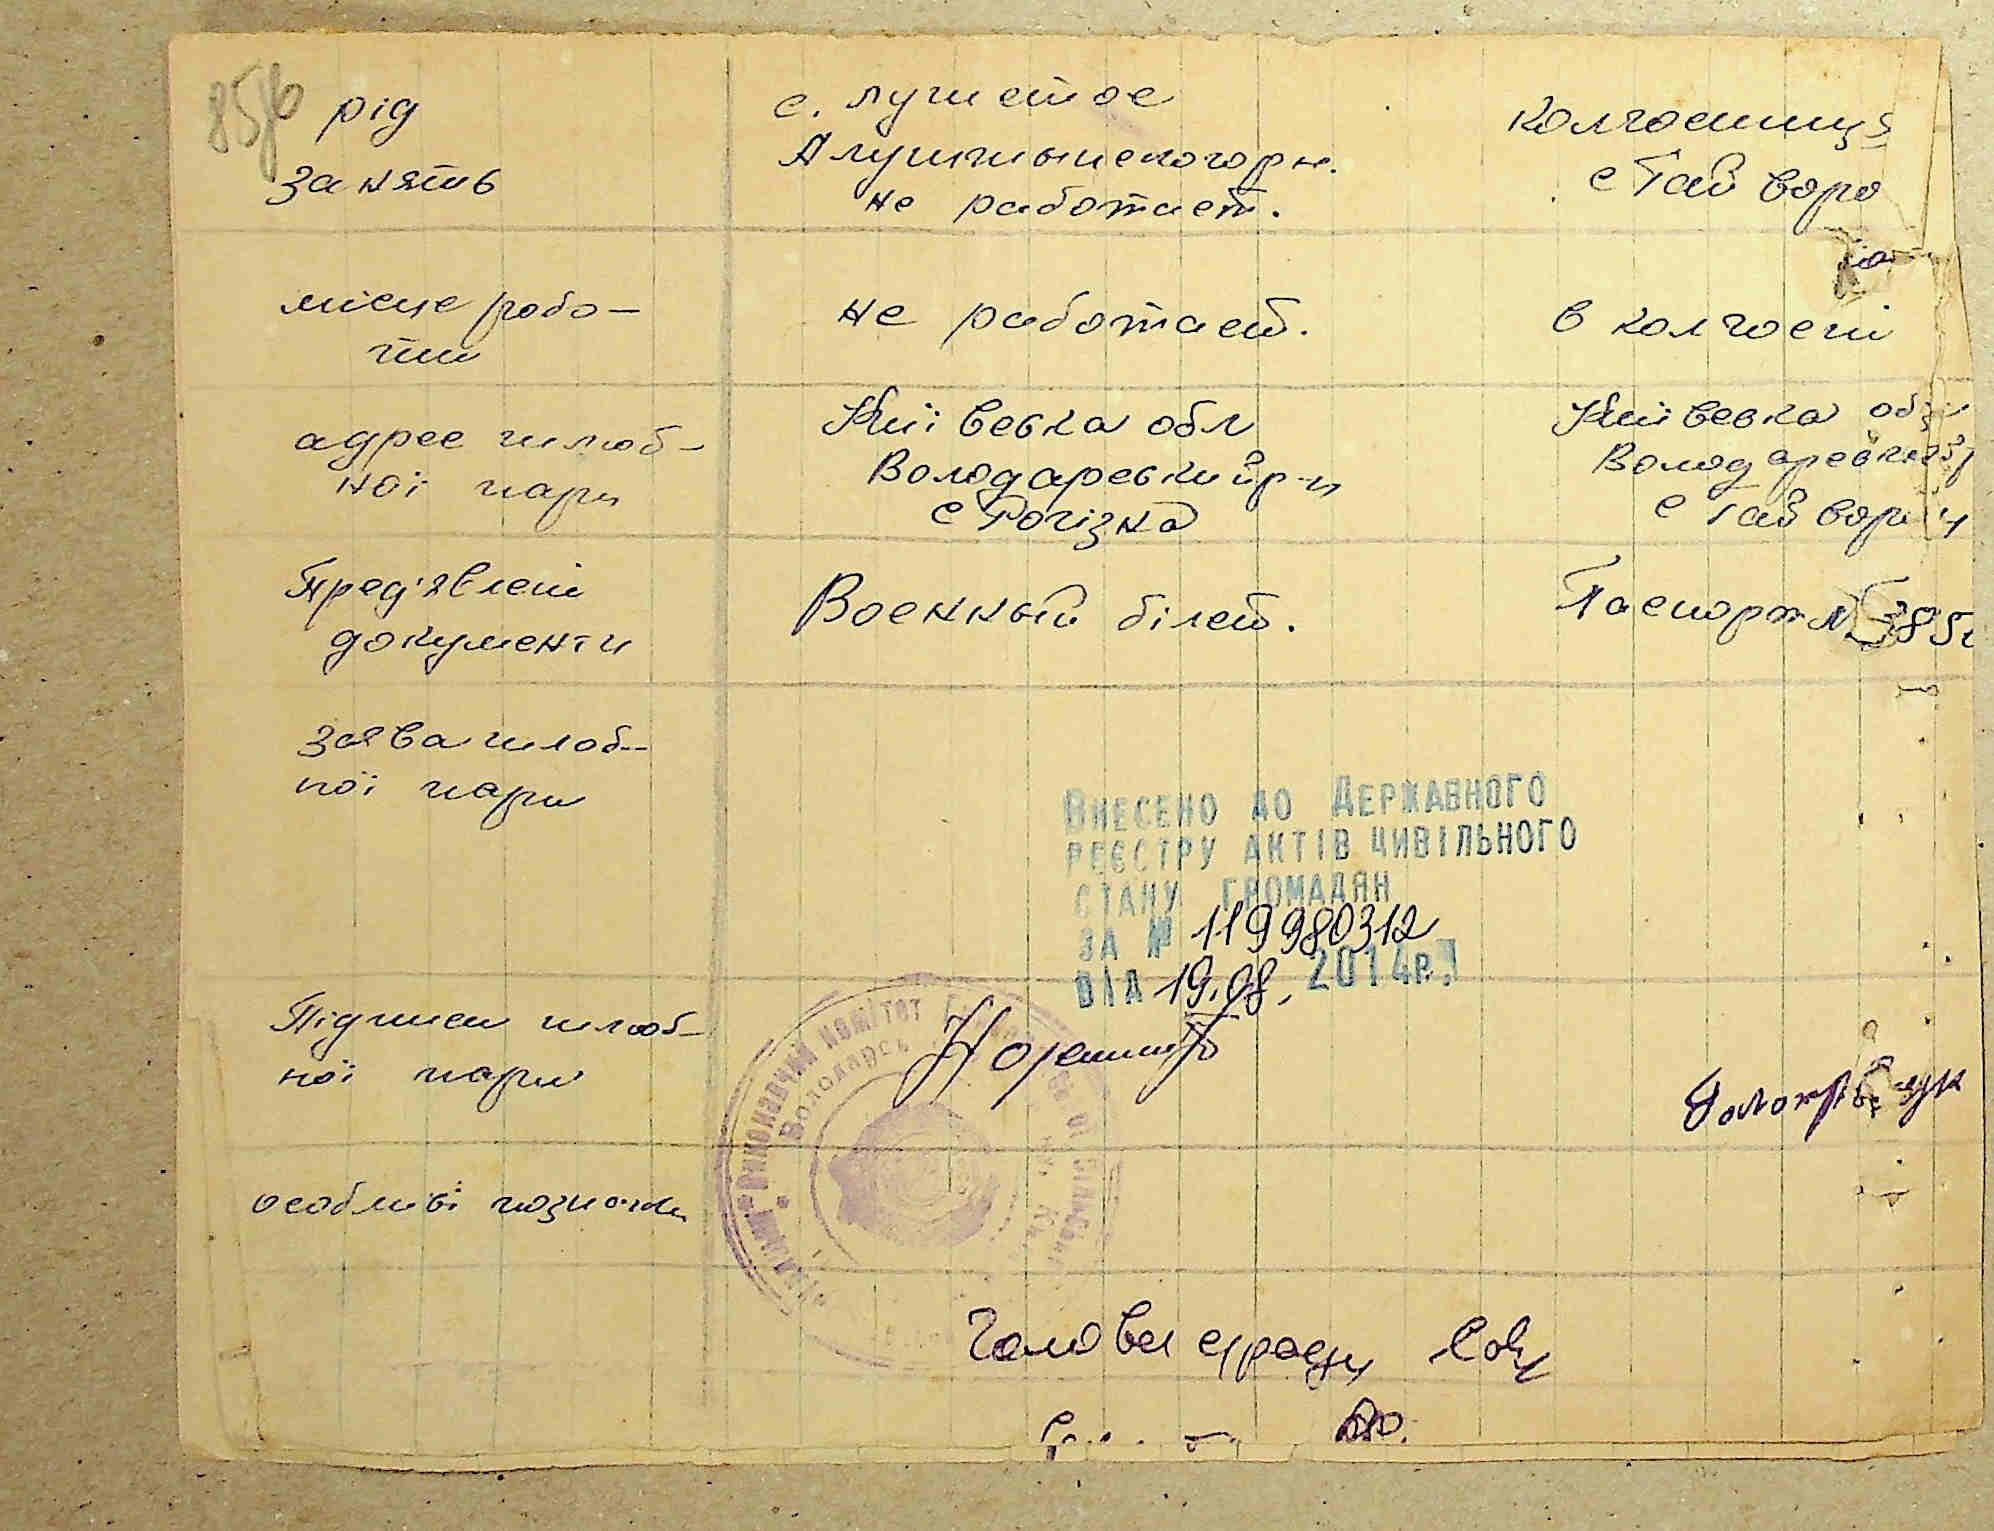 85/6
рід
занять
с. Лучистое
не работает.
колгосниця
с Гайворо
місце робо-
ти
не работает.
в колгоспі
адрес шлюб-
ної пари
Київська обл
Володарський р-н
с Рогізна
Київська обл
Володарський р
с Гайворон
Пред'явлені
документи
Военный білет.
Паспорт № 385
заява шлюб-
ної пари
Внесено до Державного
реєстру актів цивільного
стану громадян
за № 119980312
від 19.08. 2014р.
Підписи шлюб-
ної пари
Виконавчий комітет
Володарсь
особливі позначки
Голова с/ради